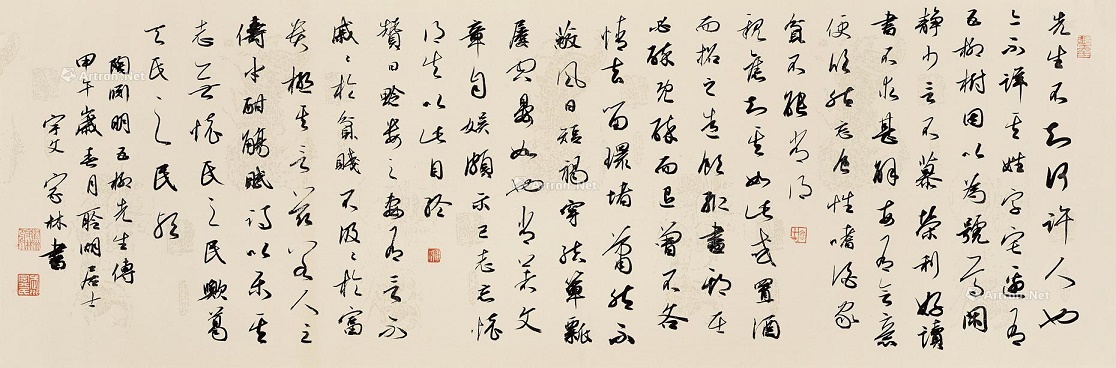 先生不知何許人也
亦不詳其姓字宅邊有
五柳樹因以為號焉閑
靜少言不慕榮利好讀
書不求甚解每有會意
便欣然忘食性嗜酒家
貧不能常得
親舊知其如此或置酒
而招之造飲輒盡期在
必醉既醉而退曾不吝
情去留環堵蕭然不
蔽風日短褐穿結簞瓢
屢空晏如也常著文
章自娛頗示己志忘懷
得失以此自終
贊曰黔婁之妻有言不
戚〻於貧賤不汲〻於富
貴極其言茲若人之
儔乎酣觴賦詩以樂其
志無懷氏之民歟葛
天氏之民歟
陶淵明五柳先生傳
甲午歲春月居士
宇文家林書
Artron.Net
Artron.Net
Artron.Net
Artron.Net
Artron.Net